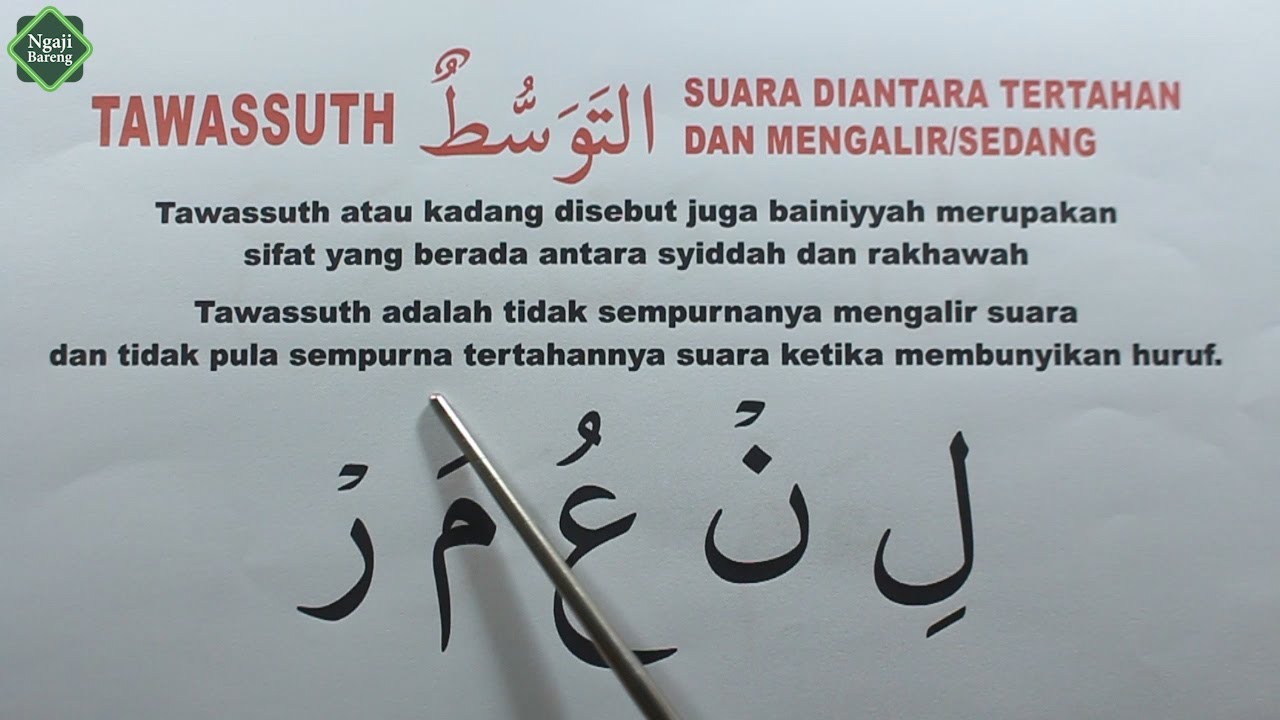 Ngaji
Bareng
TAWASSUTH اَلتَوَسُّطٌ SUARA DIANTARA TERTAHAN
DAN MENGALIR/SEDANG
Tawassuth atau kadang disebut juga bainiyyah merupakan
sifat yang berada antara syiddah dan rakhawah
Tawassuth adalah tidak sempurnanya mengalir suara
dan tidak pula sempurna tertahannya suara ketika membunyikan huruf.
لِ نْ عُ مَ رْ